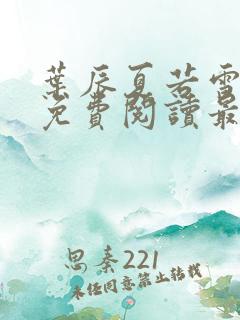 葉辰夏若雪
免費閱讀最
思秦221
未經同意禁止轉載